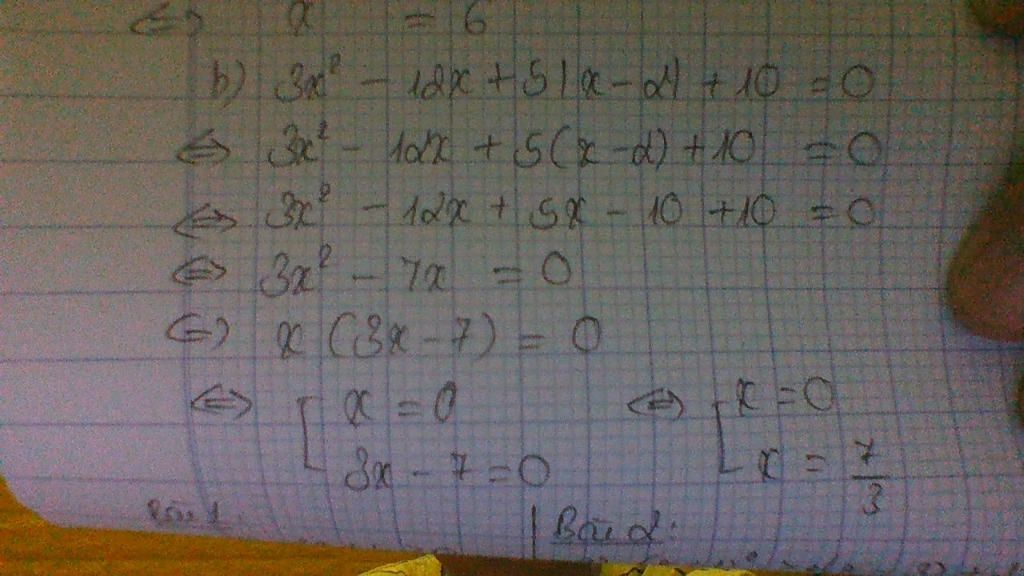 ⇔ x = 6
b) 3x² - 12x + 5|x-2| + 10 = 0
⇔ 3x² - 12x + 5(x-2) + 10 = 0
⇔ 3x² - 12x + 5x - 10 + 10 = 0
⇔ 3x² - 7x = 0
⇔ x (3x-7) = 0
⇔ [ x = 0 ⇔ [ x = 0
3x - 7 = 0 x = 7/3
Bài 1: | Bài 2: